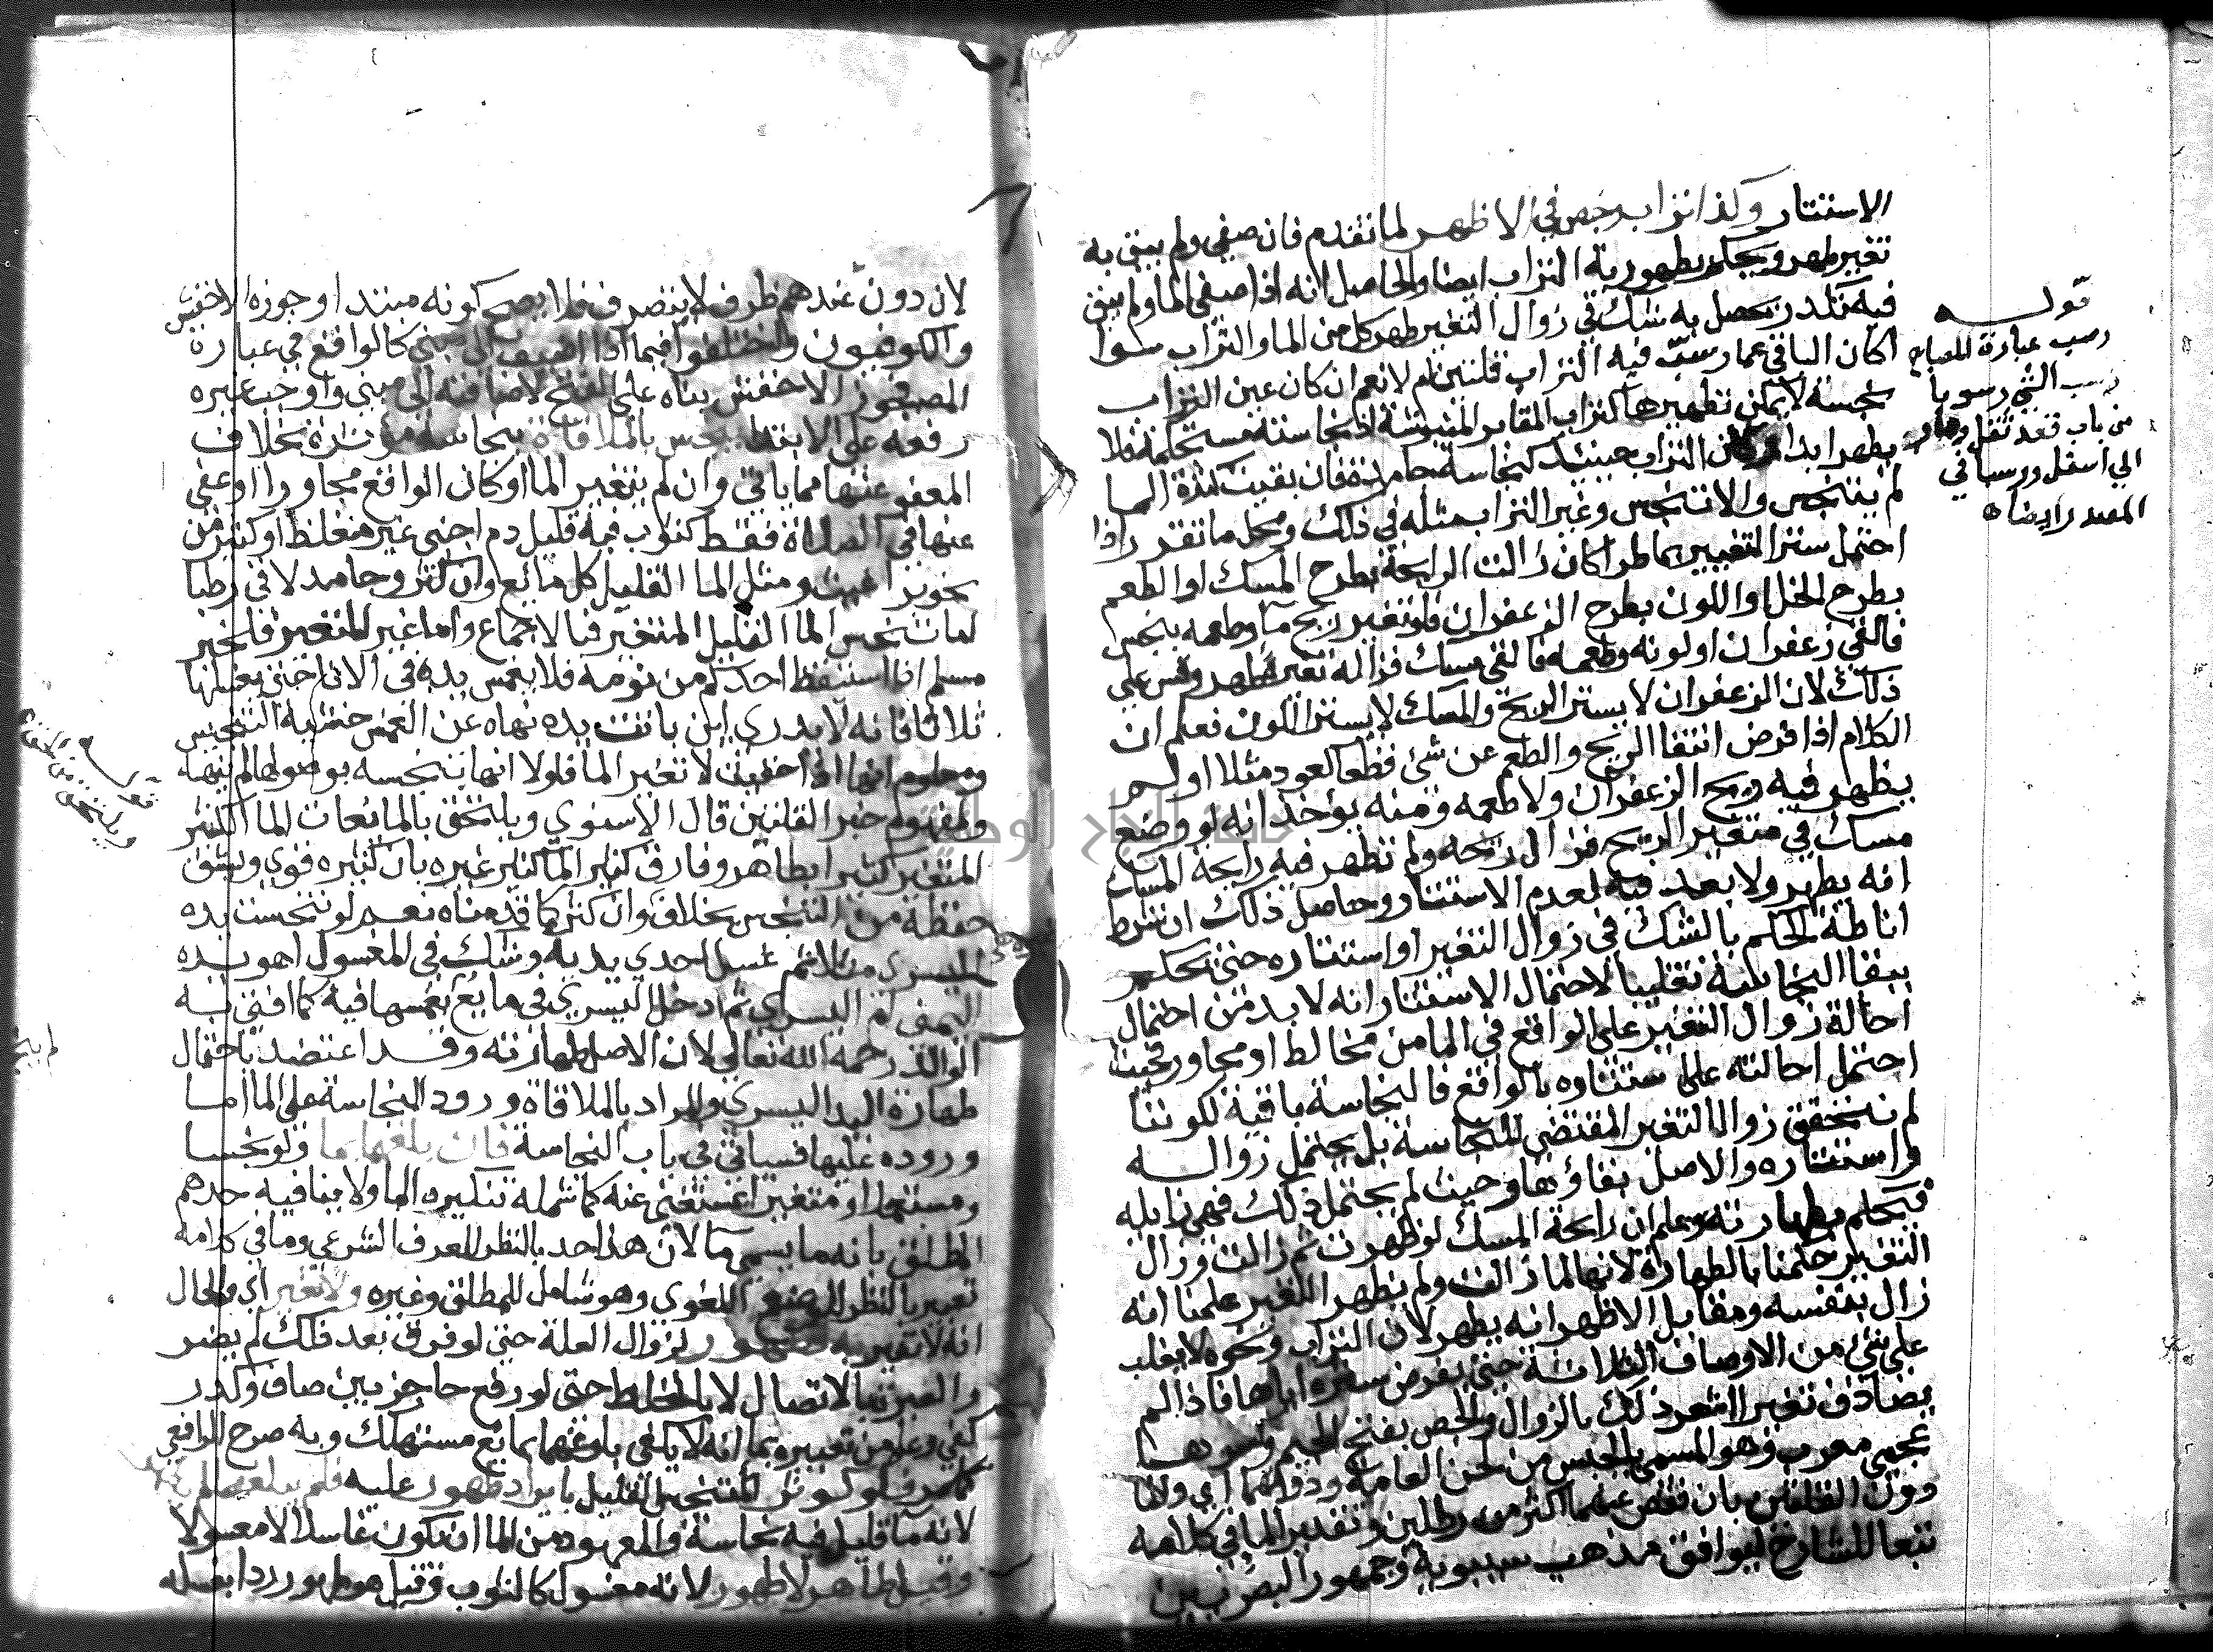 الاستتار وكذا تراب وجص في الاظهر لما تقدم فان صفي ولم يبق به
تغير طهر ويحكم بطهورية التراب ايضا والحاصل انه اذا صفي الما ولم يبق
فيه تكدر يحصل به شك في زوال التغير طهر كل من الما والتراب سوا
اكان الباقي عما رسب فيه التراب قلتين ام لا نعم ان كان عين التراب
نجسة لا يمكن تطهيرها كتراب المقابر المنبوشة اذ نجاسته مستحكمة فلا
يطهر ابدا التراب حينئذ كنجاسة جامدة فان بقيت كثرة الما
لم يتنجس والا تنجس وغير التراب مثله في ذلك ومحل ما تقرر اذا
احتمل ستر التغيير بما طرا كان زالت الرايحة بطرح المسك او الطعم
بطرح الخل او اللون بطرح الزعفران فلو تغير ريح ما وطعمه بنجس
فالقي زعفران او لونه وطعمه فالقي مسك فزال تغيره طهر وقس على
ذلك لان الزعفران لا يستر الريح والمسك لا يستر اللون فعلم ان
الكلام اذا فرض انتفا الريح والطعم عن شي قطعا كالعود مثلا او لم
يظهر فيه ريح الزعفران ولا طعمه ومنه يوخذ انه لو وضع
مسك في متغير الريح فزال ريحه ولم تظهر فيه رايحة المسك
انه يطهر ولا بعد فيه لعدم الاستتار وحاصل ذلك ان شرط
اناطة الحكم بالشك في زوال التغير او استتاره حتى يحكم
ببقا النجاسة تغليبا لاحتمال الاستتار انه لا بد من احتمال
احالة زوال التغير على الواقع في الما من مخالط او مجاور فحيث
احتمل احالته على استتاره بالواقع فالنجاسة باقية لكوننا
لم نتحقق زوال التغير المقتضي للنجاسة بل يحتمل زواله
واستتاره والاصل بقاؤها وحيث لم يحتمل ذلك فهي زايله
فيحكم بطهارته وعلم ان رايحة المسك لو ظهرت ثم زالت وزال
التغير حكمنا بالطهارة لانها لما زالت ولم يظهر التغير علمنا انه
زال بنفسه ومقابل الاظهر انه يطهر لان التراب ونحوه لا يغلب
على شي من الاوصاف الثلاثة حتى يفرض ستره اياها فاذا لم
يصادف تغيرا اشعر ذلك بالزوال والجص بفتح الجيم وكسرها
عجمي معرب وهو المسمى بالجبس من لحن العامة ودونهما اي والما
دون القلتين بان نقص عنهما اكثر من رطلين وتقدير الما في كلامه
تبعا للشارح ليوافق مذهب سيبويه وجمهور البصريين
قوله
رسب عبارة المصباح
رسب الشي رسوبا
من باب قعد ثقل وصار
الى اسفل ورسبا في
المصدر ايضا
لان دون عندهم ظرف لا يتصرف فلا يصح كونه مبتدا وجوزه الاخفش
والكوفيون واختلفوا فيما اذا اضيف الى مبني كالواقع في عبارة
المصنف فجوز الاخفش بناه على الفتح لاضافته الى مبني واوجب غيره
رفعه على الابتدا ينجس بالملاقاة بنجاسة مؤثرة بخلاف
المعفو عنها مما ياتي وان لم يتغير الما او كان الواقع مجاورا او عفي
عنها في الصلاة فقط كثوب فيه قليل دم اجنبي غير مغلظ او كثير من
نحو براغيث ومثل الما القليل كل مائع وان كثر وجامد لاقى رطبا
تنجس الما القليل المتغير فبالاجماع واما غير المتغير فلخبر
مسلم اذا استيقظ احدكم من نومه فلا يغمس يده في الانا حتى يغسلها
ثلاثا فانه لا يدري اين باتت يده نهاه عن الغمس خشية التنجيس
ومعلوم انها اذا خفيت لا تغير الما فلولا انها تنجسه بوصولها لم ينهه
ولمفهوم خبر القلتين قال الاسنوي ويلتحق بالمايعات الما الكثير
المتغير كثيرا بطاهر وفارق كثير الما كثير غيره بان كثيره قوي ويشق
حفظه من التنجس بخلاف وان كثر كما قدمناه نعم لو تنجست يده
اليسرى مثلا ثم غسل احدى يديه وشك في المغسول اهو يده
اليمنى ام اليسرى ثم ادخل اليسرى في مايع لم يتنجس بغمسها فيه كما افتى به
الوالد رحمه الله تعالى لان الاصل طهارته وقد اعتضد باحتمال
طهارة اليد اليسرى والمراد بالملاقاة ورود النجاسة على الما اما
وروده عليها فسياتي في باب النجاسة فان بلغهما بما ولو نجسا
ومستعملا او متغيرا بمستغنى عنه كما شمله تنكيره الما ولا ينافيه حدهم
المطلق بانه ما يسمى ما لان هذا حد بالنظر للعرف الشرعي وما في كلامه
تعبير بالنظر للوضع اللغوي وهو شامل للمطلق وغيره ولا تغير اي والحال
انه لا تغير به فطهور لزوال العلة حتى لو فرق بعد ذلك لم يضر
والعبرة بالاتصال لا بالخلط حتى لو رفع حاجز بين صاف وكدر
كفى وعلم من تعبيره بما انه لا يكفي بلوغهما بمايع مستهلك وبه صرح الرافعي
كما مر فلو كوثر المتنجس القليل بايراد طهور عليه فلم يبلغهما لم يطهر
لانه ما قليل فيه نجاسة والمعهود من الما ان تكون غاسلا لا مغسولا
وقيل طاهر لا طهور لانه مغسول كالثوب وقيل هو طهور ردا بغسله